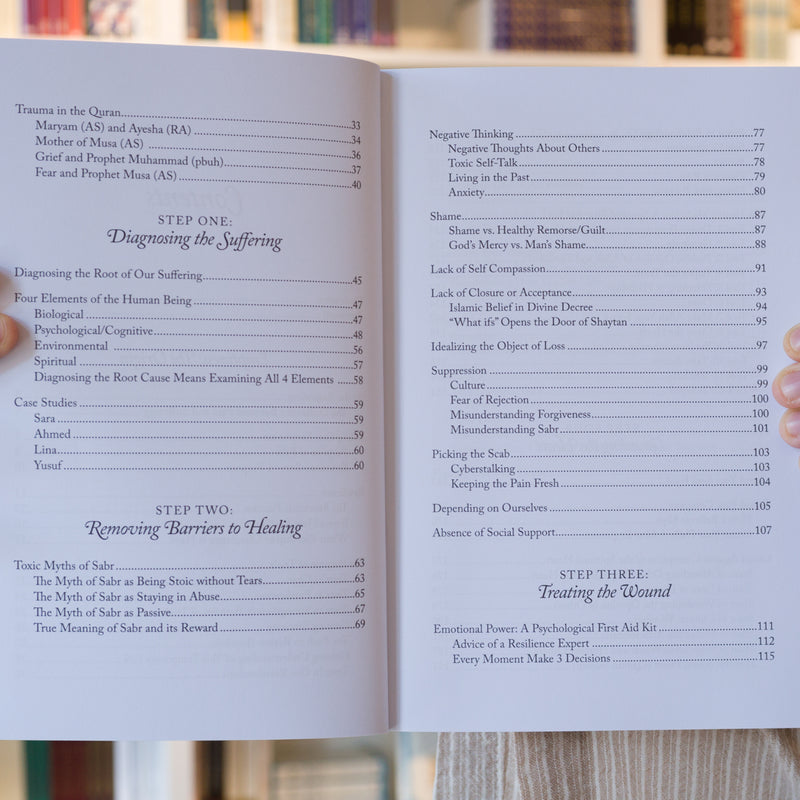 Trauma in the Quran 33
Maryam (AS) and Ayesha (RA) 34
Mother of Musa (AS) 36
Grief and Prophet Muhammad (pbuh) 37
Fear and Prophet Musa (AS) 40
STEP ONE:
Diagnosing the Suffering
Diagnosing the Root of Our Suffering 45
Four Elements of the Human Being 47
Biological 47
Psychological/Cognitive 48
Environmental 56
Spiritual 57
Diagnosing the Root Cause Means Examining All 4 Elements 58
Case Studies 59
Sara 59
Ahmed 59
Lina 60
Yusuf 60
STEP TWO:
Removing Barriers to Healing
Toxic Myths of Sabr 63
The Myth of Sabr as Being Stoic without Tears 63
The Myth of Sabr as Staying in Abuse 65
The Myth of Sabr as Passive 67
True Meaning of Sabr and its Reward 69
Negative Thinking 77
Negative Thoughts About Others 77
Toxic Self-Talk 78
Living in the Past 79
Anxiety 80
Shame 87
Shame vs. Healthy Remorse/Guilt 87
God's Mercy vs. Man's Shame 88
Lack of Self Compassion 91
Lack of Closure or Acceptance 93
Islamic Belief in Divine Decree 94
"What ifs" Opens the Door of Shaytan 95
Idealizing the Object of Loss 97
Suppression 99
Culture 99
Fear of Rejection 100
Misunderstanding Forgiveness 100
Misunderstanding Sabr 101
Picking the Scab 103
Cyberstalking 103
Keeping the Pain Fresh 104
Depending on Ourselves 105
Absence of Social Support 107
STEP THREE:
Treating the Wound
Emotional Power: A Psychological First Aid Kit 111
Advice of a Resilience Expert 112
Every Moment Make 3 Decisions 115